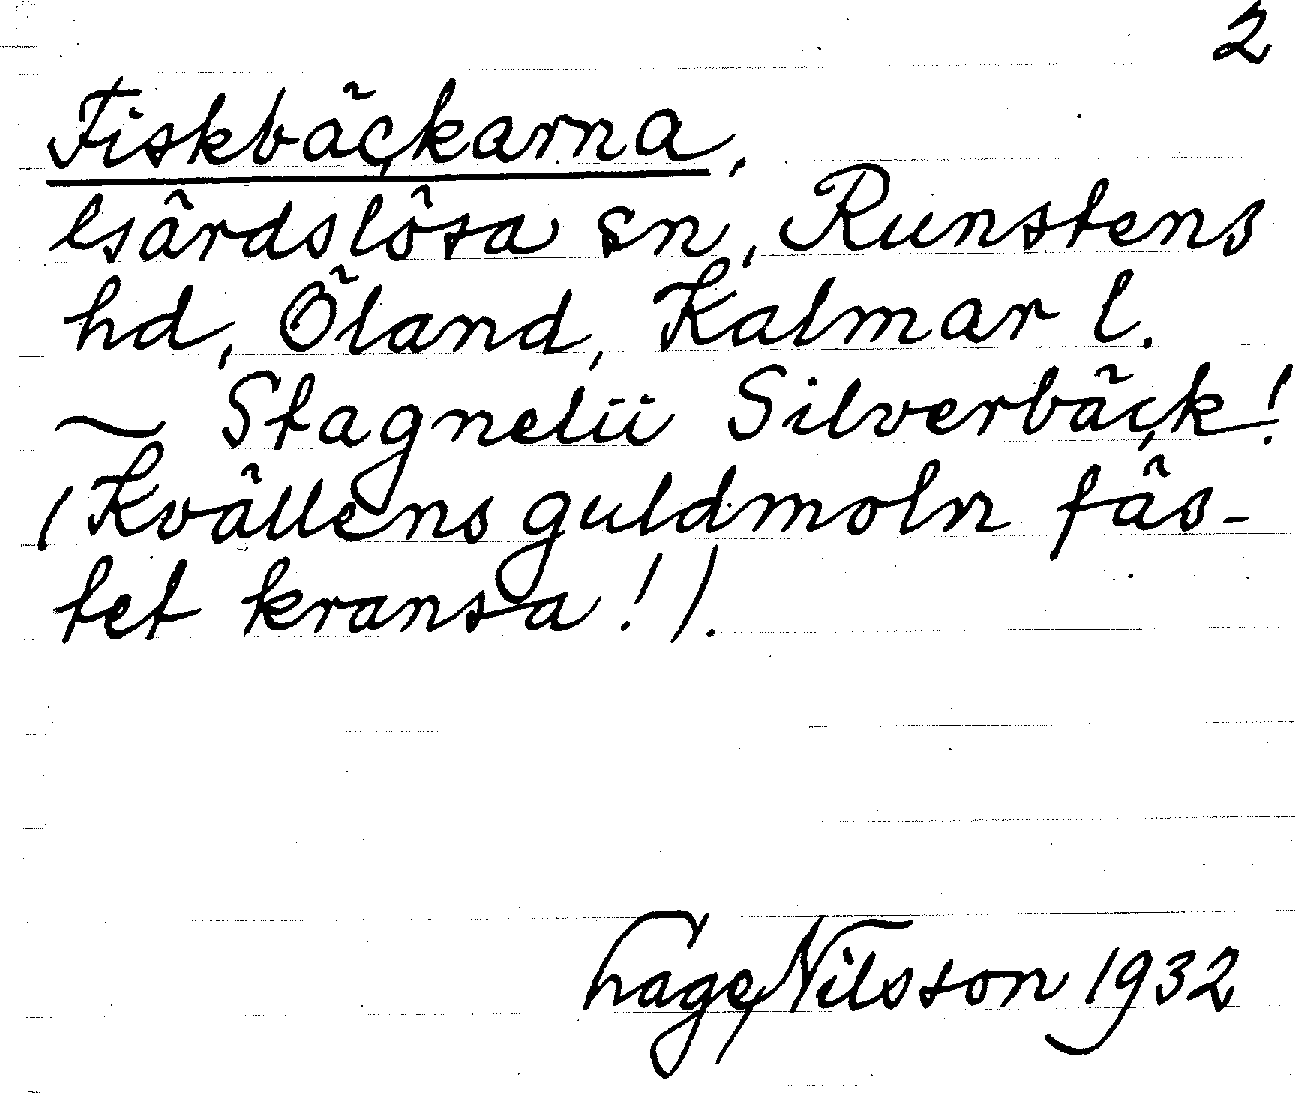 2
Fiskbäckarna,
Gärdslösa sn, Runstens
hd, Öland, Kalmar l.
~ Stagnelii Silverbäck!
(Kvällens guldmoln fäs-
tet kransa!).
Hage, Nilsson 1932